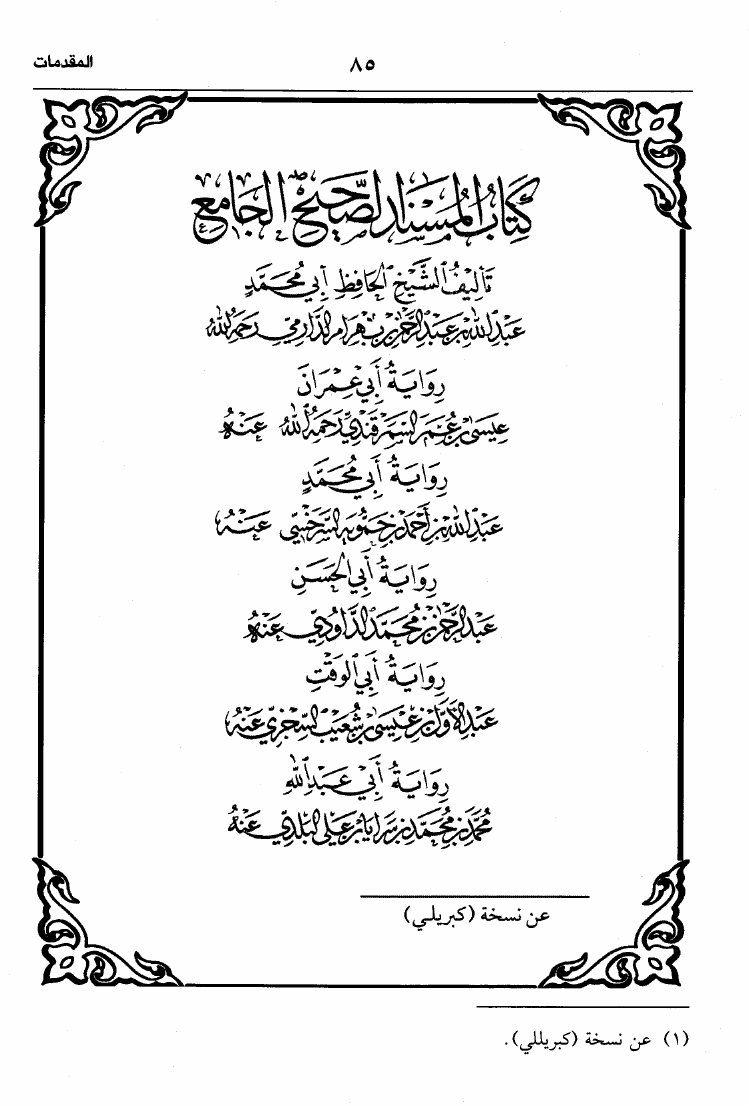 المقدمات
٨٥
كِتَابُ المُسْنَد الصَّحِيحِ الجَامِع
تَأْلِيفُ الشَّيْخِ الحَافِظِ أَبِي مُحَمَّدٍ
عَبْدِ اللهِ بْنِ عَبْدِ الرَّحْمٰنِ بْنِ بَهْرَامِ الدَّارِمِيِّ رَحِمَهُ اللهُ
رِوَايَةُ أَبِي عِمْرَانَ
عِيسَى بْنِ عُمَرَ السَّمَرْقَنْدِيِّ رَحِمَهُ اللهُ عَنْهُ
رِوَايَةُ أَبِي مُحَمَّدٍ
عَبْدِ اللهِ بْنِ أَحْمَدَ بْنِ حَمُّويَه السَّرَخْسِيِّ عَنْهُ
رِوَايَةُ أَبِي الحَسَنِ
عَبْدِ الرَّحْمٰنِ بْنِ مُحَمَّدٍ الدَّاوُدِيِّ عَنْهُ
رِوَايَةُ أَبِي الوَقْتِ
عَبْدِ الأَوَّلِ بْنِ عِيسَى بْنِ شُعَيْبٍ السِّجْزِيِّ عَنْهُ
رِوَايَةُ أَبِي عَبْدِ اللهِ
مُحَمَّدِ بْنِ مُحَمَّدِ بْنِ سَرَايَا بْنِ عَلِي البَلَدِيِّ عَنْهُ
عن نسخة (كبريلي)
(١) عن نسخة (كبريللي).